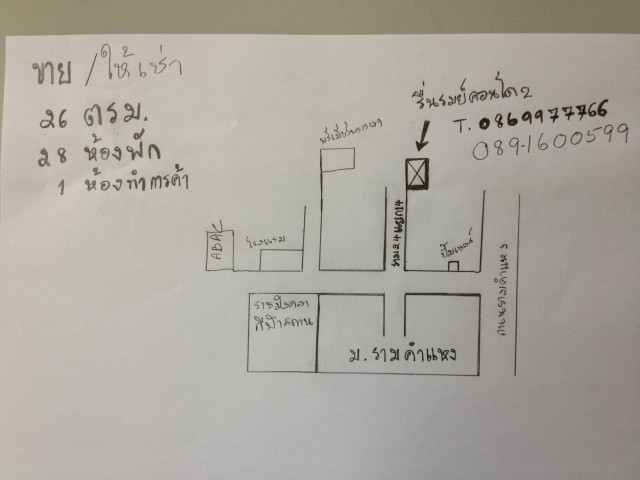 ขาย / ให้เช่า
26 ตรม.
28 ห้องพัก
1 ห้องทำการค้า
รื่นรมย์คอนโด 2
T. 0869977766
089-1600599
ABAC
โรงแรม
ราชมังคลา
กีฬาสถาน
ม. รามคำแหง
ถนนรามคำแหง